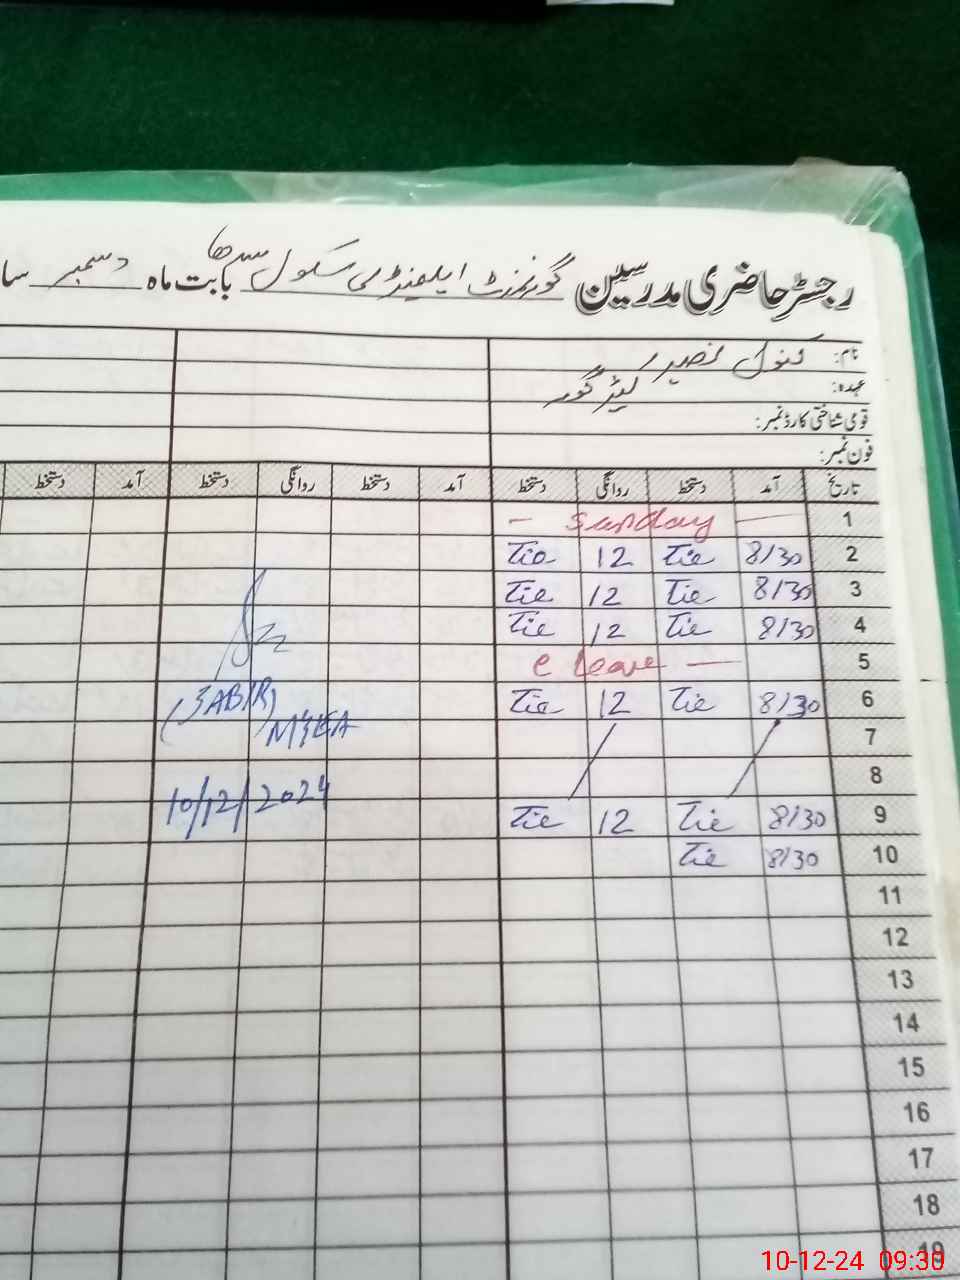 رجسٹر حاضری مدرسین گورنمنٹ ایلیمنٹری سکول بابت ماہ دسمبر سا
نام: کنول نصیر
عہدہ:
قومی شناختی کارڈ نمبر:
فون نمبر:
تاریخ آمد دستخط روانگی دستخط آمد دستخط روانگی دستخط آمد دستخط
1 — Sunday —
2 8/30 Tie 12 Tie
3 8/30 Tie 12 Tie
4 8/30 Tie 12 Tie
5 C leave —
6 8/30 Tie 12 Tie
7
8
9 8/30 Tie 12 Tie
10 8/30 Tie
11
12
13
14
15
16
17
18
19
(SABIR)
10/12/2024
10-12-24 09:30